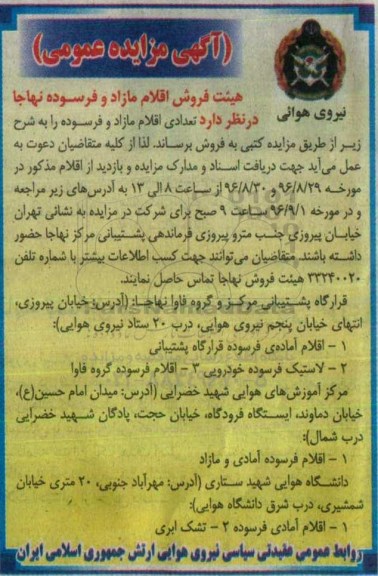 (آگهی مزایده عمومی)
نیروی هوائی
هیئت فروش اقلام مازاد و فرسوده نهاجا
درنظر دارد تعدادی اقلام مازاد و فرسوده را به شرح
زیر از طریق مزایده کتبی به فروش برساند. لذا از کلیه متقاضیان دعوت به
عمل می‌آید جهت دریافت اسناد و مدارک مزایده و بازدید از اقلام مذکور در
مورخه ۹۶/۸/۲۹ و ۹۶/۸/۳۰ از ساعت ۸ الی ۱۳ به آدرس‌های زیر مراجعه
و در مورخه ۹۶/۹/۱ ساعت ۹ صبح برای شرکت در مزایده به نشانی تهران
خیابان پیروزی جنب مترو پیروزی فرماندهی پشتیبانی مرکز نهاجا حضور
داشته باشند. متقاضیان می‌توانند جهت کسب اطلاعات بیشتر با شماره تلفن
۳۳۲۴۰۰۲۰ هیئت فروش نهاجا تماس حاصل نمایند.
قرارگاه پشتیبانی مرکز و گروه فاوا نهاجا: (آدرس: خیابان پیروزی،
انتهای خیابان پنجم نیروی هوایی، درب ۲۰ ستاد نیروی هوایی):
۱ - اقلام آماده‌ی فرسوده قرارگاه پشتیبانی
۲ - لاستیک فرسوده خودرویی ۳ - اقلام فرسوده گروه فاوا
مرکز آموزش‌های هوایی شهید خضرایی (آدرس: میدان امام حسین(ع)،
خیابان دماوند، ایستگاه فرودگاه، خیابان حجت، پادگان شهید خضرایی
درب شمال):
۱ - اقلام فرسوده آمادی و مازاد
دانشگاه هوایی شهید ستاری (آدرس: مهرآباد جنوبی، ۲۰ متری خیابان
شمشیری، درب شرق دانشگاه هوایی):
۱ - اقلام آمادی فرسوده ۲ - تشک ابری
روابط عمومی عقیدتی سیاسی نیروی هوایی ارتش جمهوری اسلامی ایران